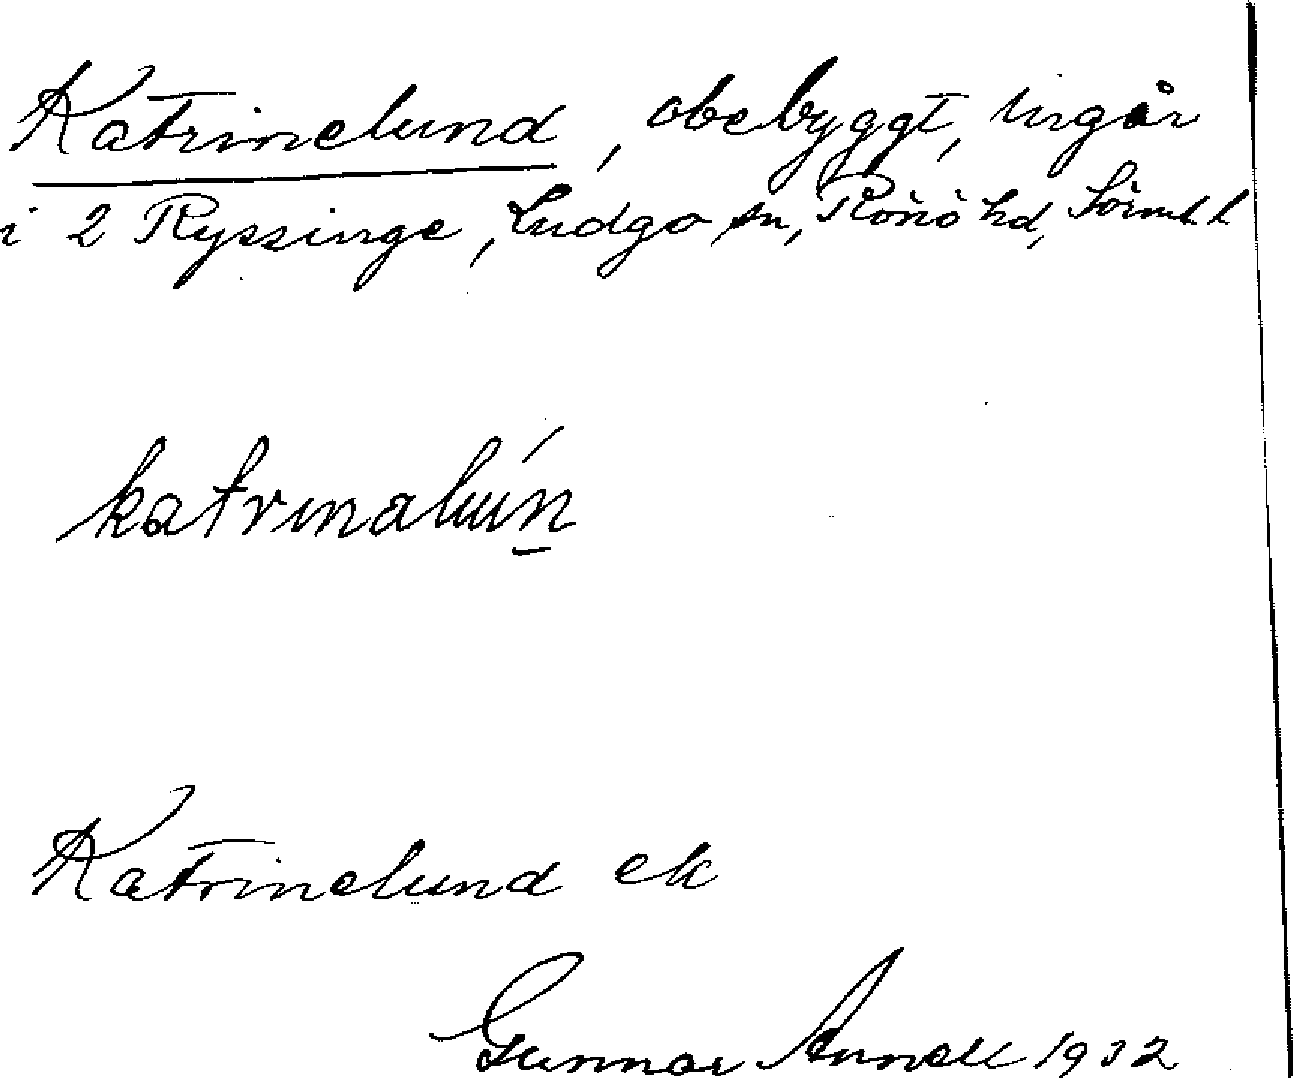 Katrinelund, obebyggt, ingår
i 2 Ryssinge, Ludgo sn, Rönö hd, Sörml. l
katrinalún
Katrinelund ek
Gunnar Annell 1932